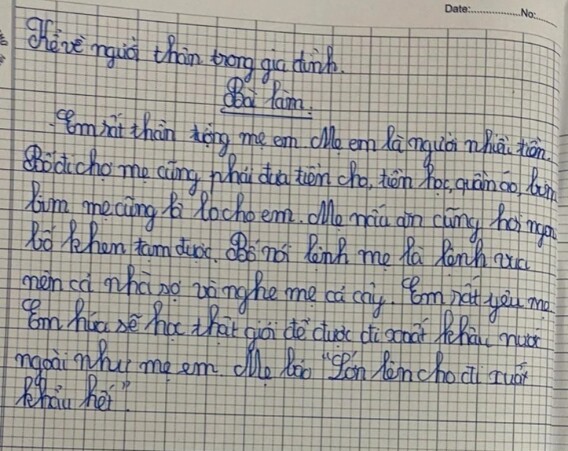 Date: No:
Kể về người thân trong gia đình.
Bài làm.
Em rất thân tượng mẹ em. Mẹ em là người nhiều tiền.
Bố đi chợ mẹ cũng phải đưa tiền cho, tiền học, quần áo, bim
bim mẹ cũng là lo cho em. Mẹ nấu ăn cũng hơi ngon
bố khen tạm được. Bố nói lệnh mẹ là lệnh vua
nên cả nhà sợ và nghe mẹ cả cây. Em rất yêu mẹ.
Em hứa sẽ học thật giỏi để được đi xoất khẩu nước
ngoài như mẹ em. Mẹ bảo "Lớn lên cho đi xuất
khẩu hết".